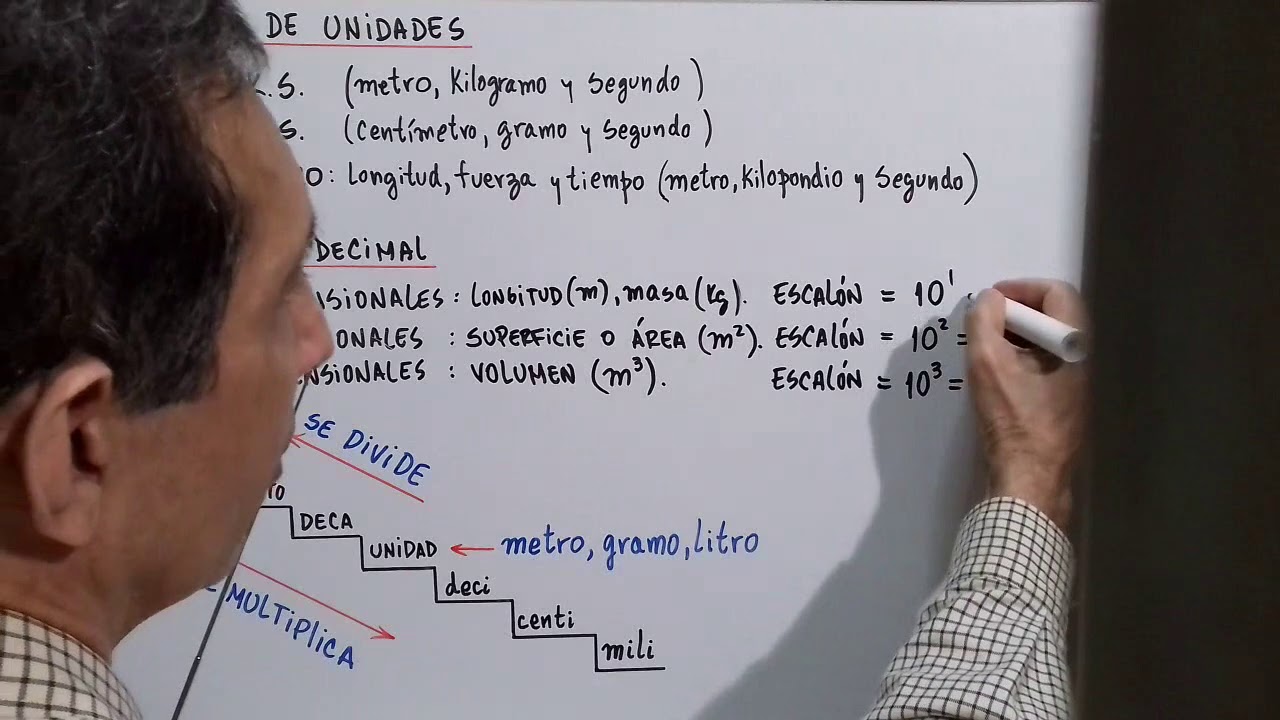 DE UNIDADES
.S. (metro, Kilogramo y Segundo)
S. (Centímetro, gramo y Segundo)
O: Longitud, fuerza y tiempo (metro, Kilopondio y Segundo)
DECIMAL
NSIONALES : LONGITUD (m), masa (Kg). ESCALÓN = 10¹
IONALES : SUPERFICIE O ÁREA (m²). ESCALÓN = 10² =
ENSIONALES : VOLUMEN (m³). ESCALÓN = 10³ =
SE DIVIDE
TO
DECA
UNIDAD ← metro, gramo, litro
deci
centi
mili
E MULTIPLICA